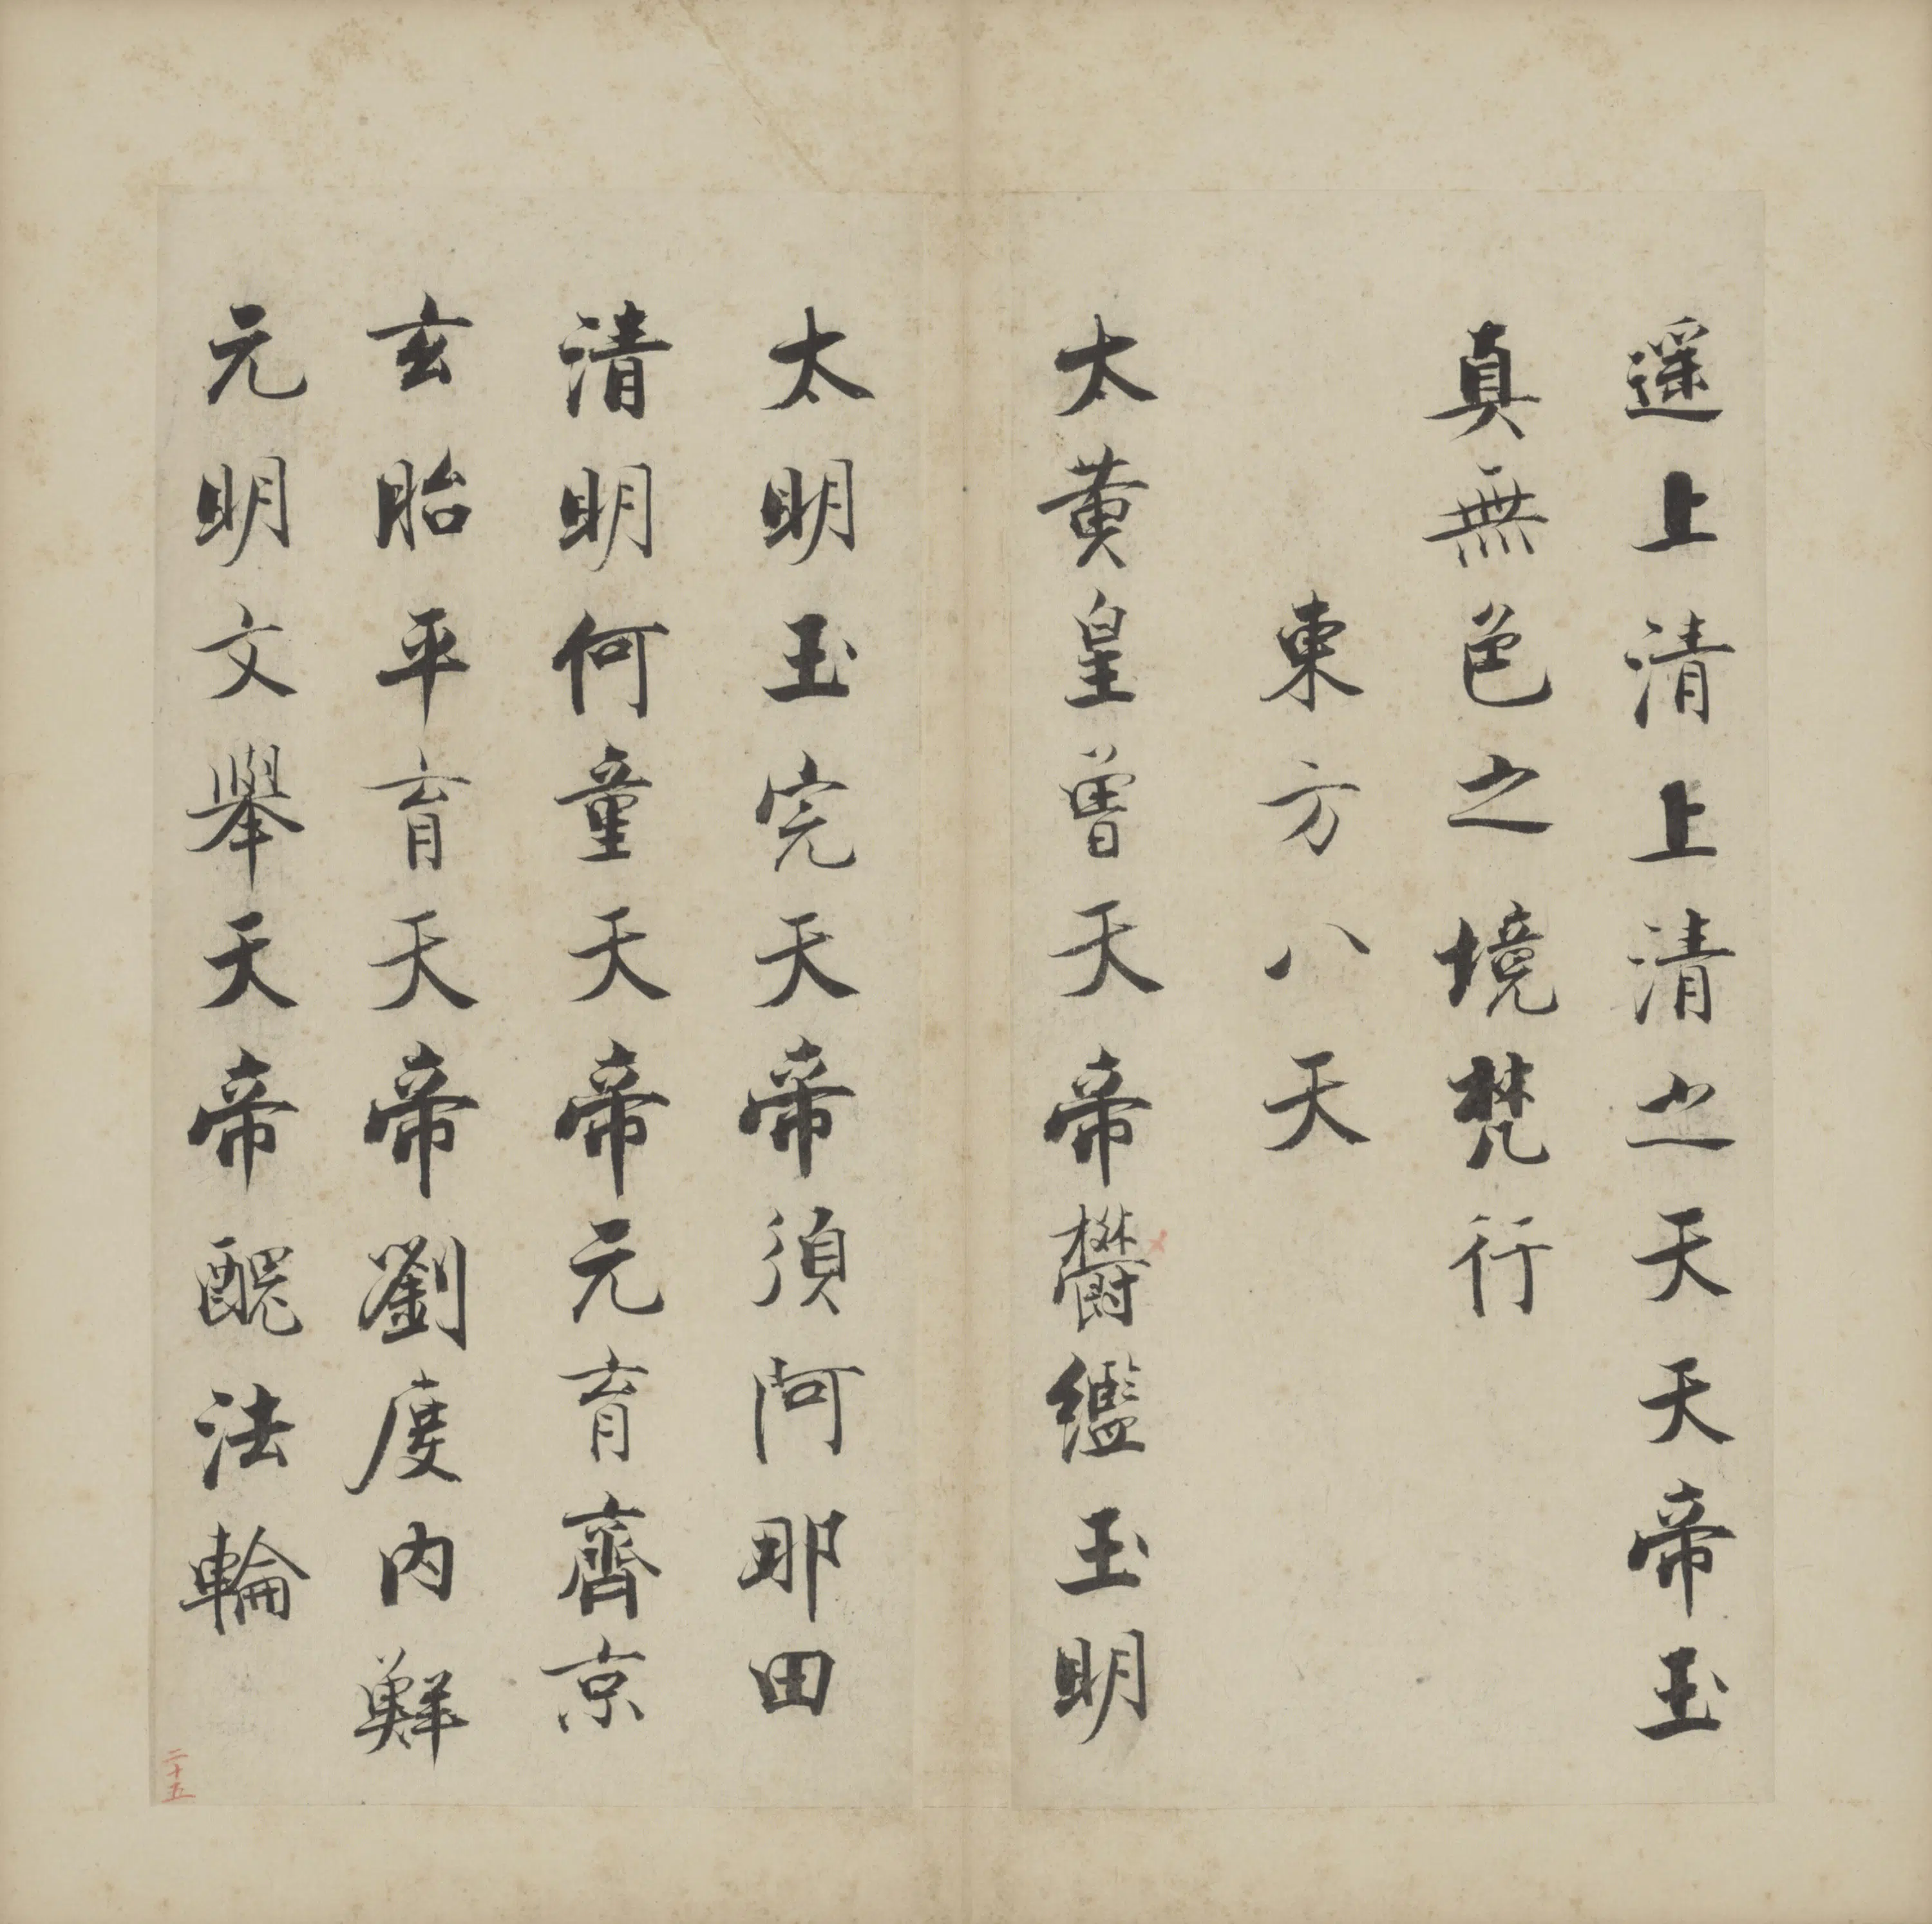 遥上清上清之天天帝玉
真無色之境梵行
東方八天
太黄皇曾天帝欝繿玉明
太明玉完天帝須阿那田
清明何童天帝元育齊京
玄胎平育天帝劉度内鮮
元明文舉天帝醜法輪
二十五